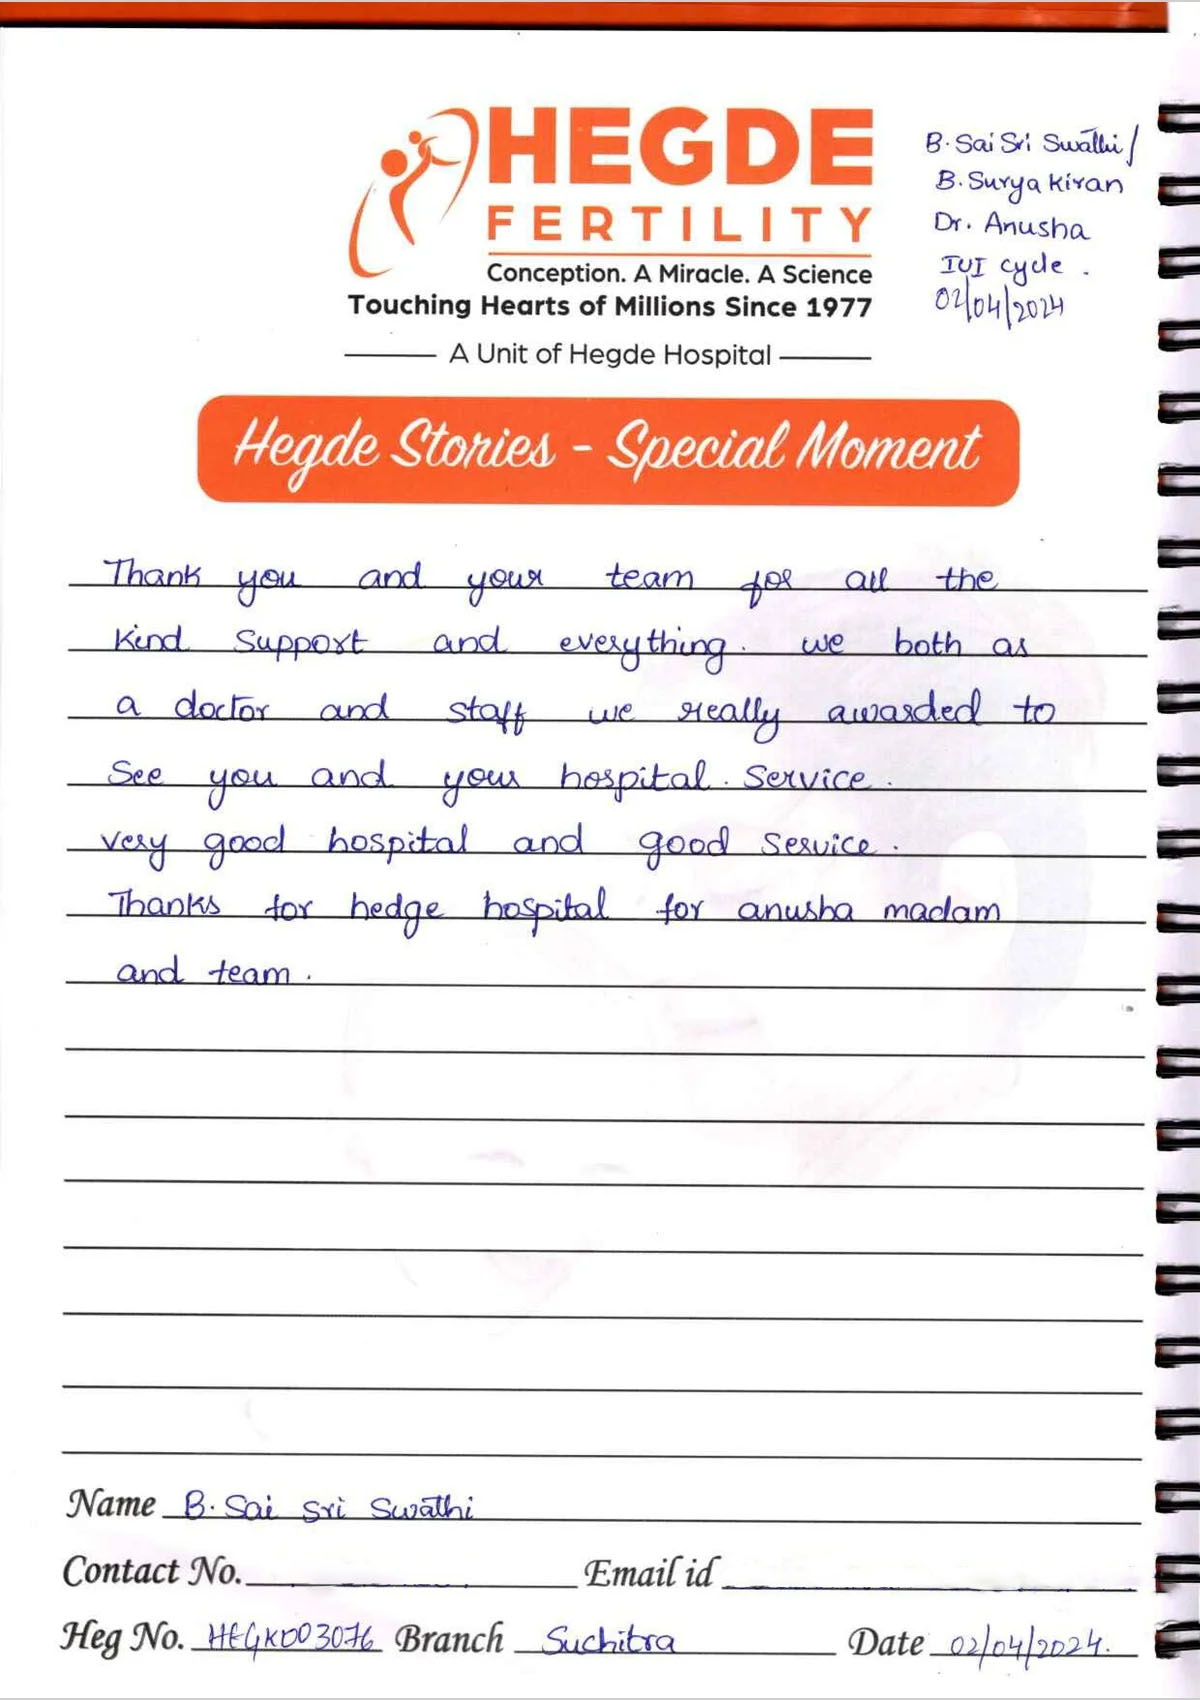 HEGDE
FERTILITY
Conception. A Miracle. A Science
Touching Hearts of Millions Since 1977
A Unit of Hegde Hospital
B. Sai Sri Swathi/
B. Surya Kiran
Dr. Anusha
IUI cycle.
02/04/2024
Hegde Stories - Special Moment
Thank you and your team for all the
kind support and everything. we both as
a doctor and staff we really awarded to
See you and your hospital. Service.
very good hospital and good service.
Thanks for hedge hospital for anusha madam
and team.
Name B. Sai Sri Swathi
Contact No. Email id
Heg No. Branch Suchitra Date 02/04/2024.